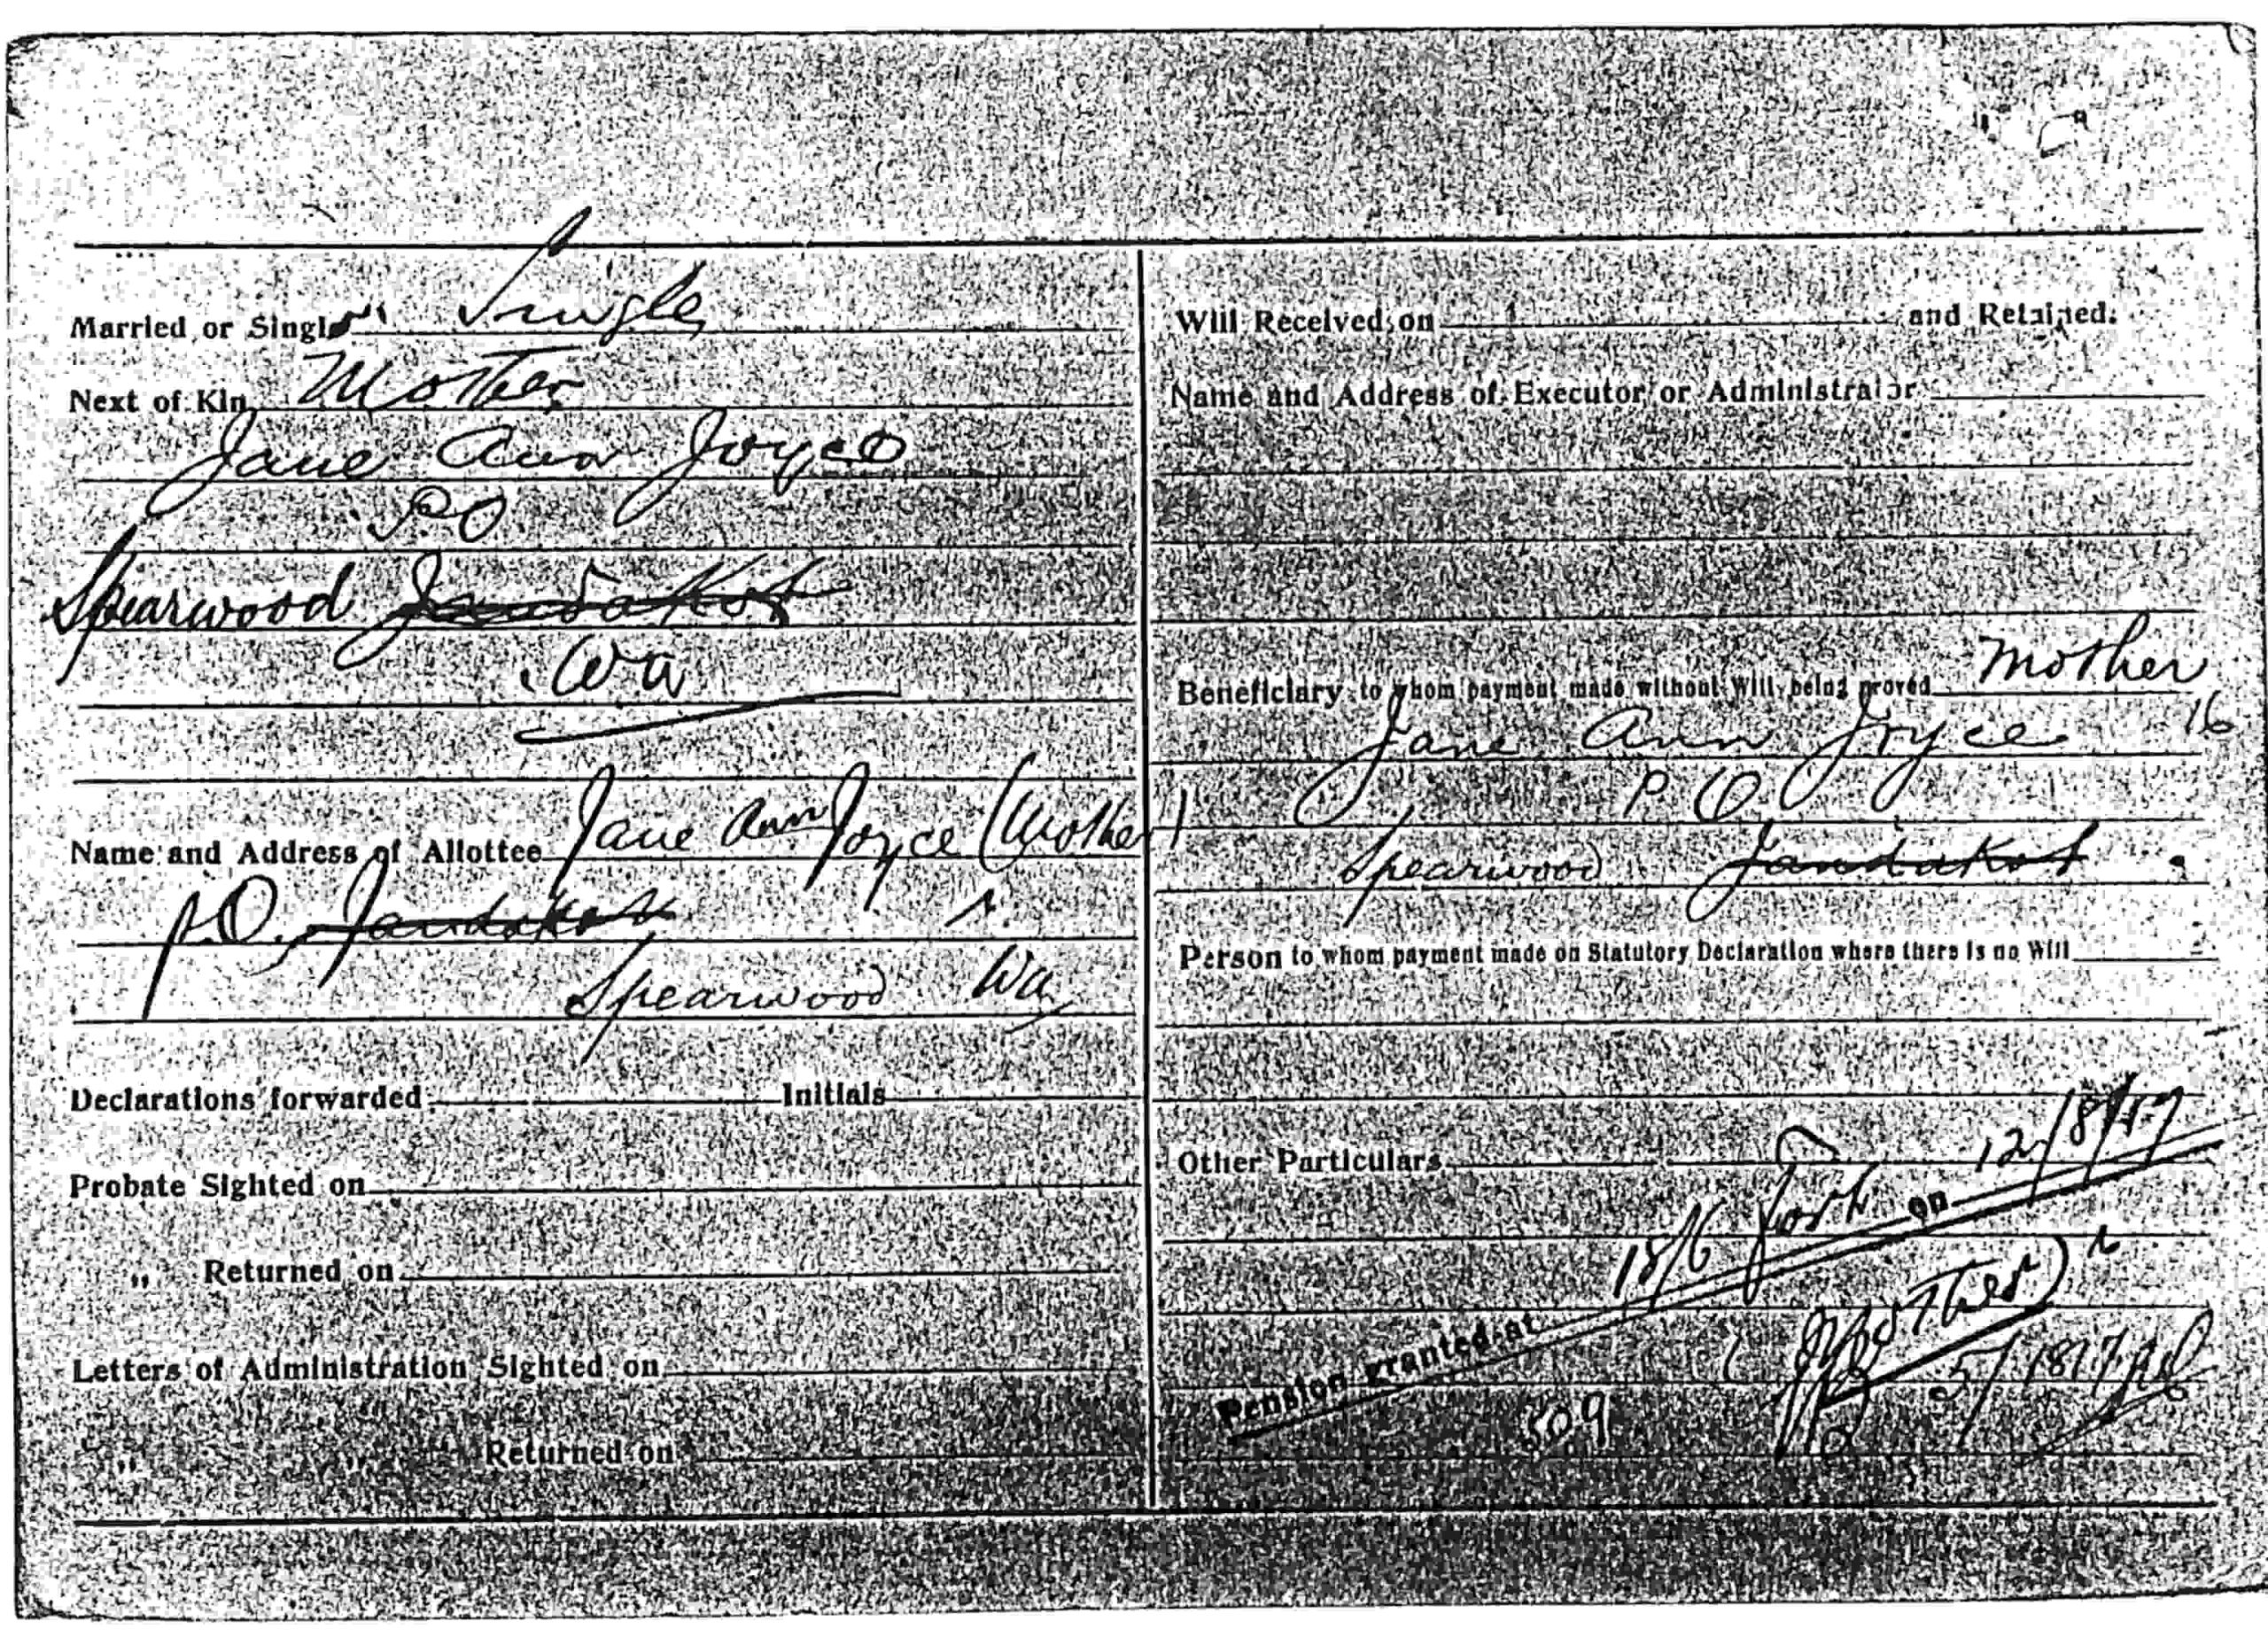 Married or Single Single
Next of Kin Mother
Jane Ann Joyce
P.O
Spearwood Jandakot
WA
Name and Address of Allottee Jane Ann Joyce (Mother)
P.O. Jandakot
Spearwood WA
Declarations forwarded Initials
Probate Sighted on
„ Returned on
Letters of Administration Sighted on
„ „ Returned on
Will Received on and Retained.
Name and Address of Executor or Administrator
Beneficiary to whom payment made without Will being proved Mother
Jane Ann Joyce 16
P O
Spearwood Jandakot
Person to whom payment made on Statutory Declaration where there is no Will
Other Particulars
Pension granted at 18/6 on 12/8/17
(Mother)
509